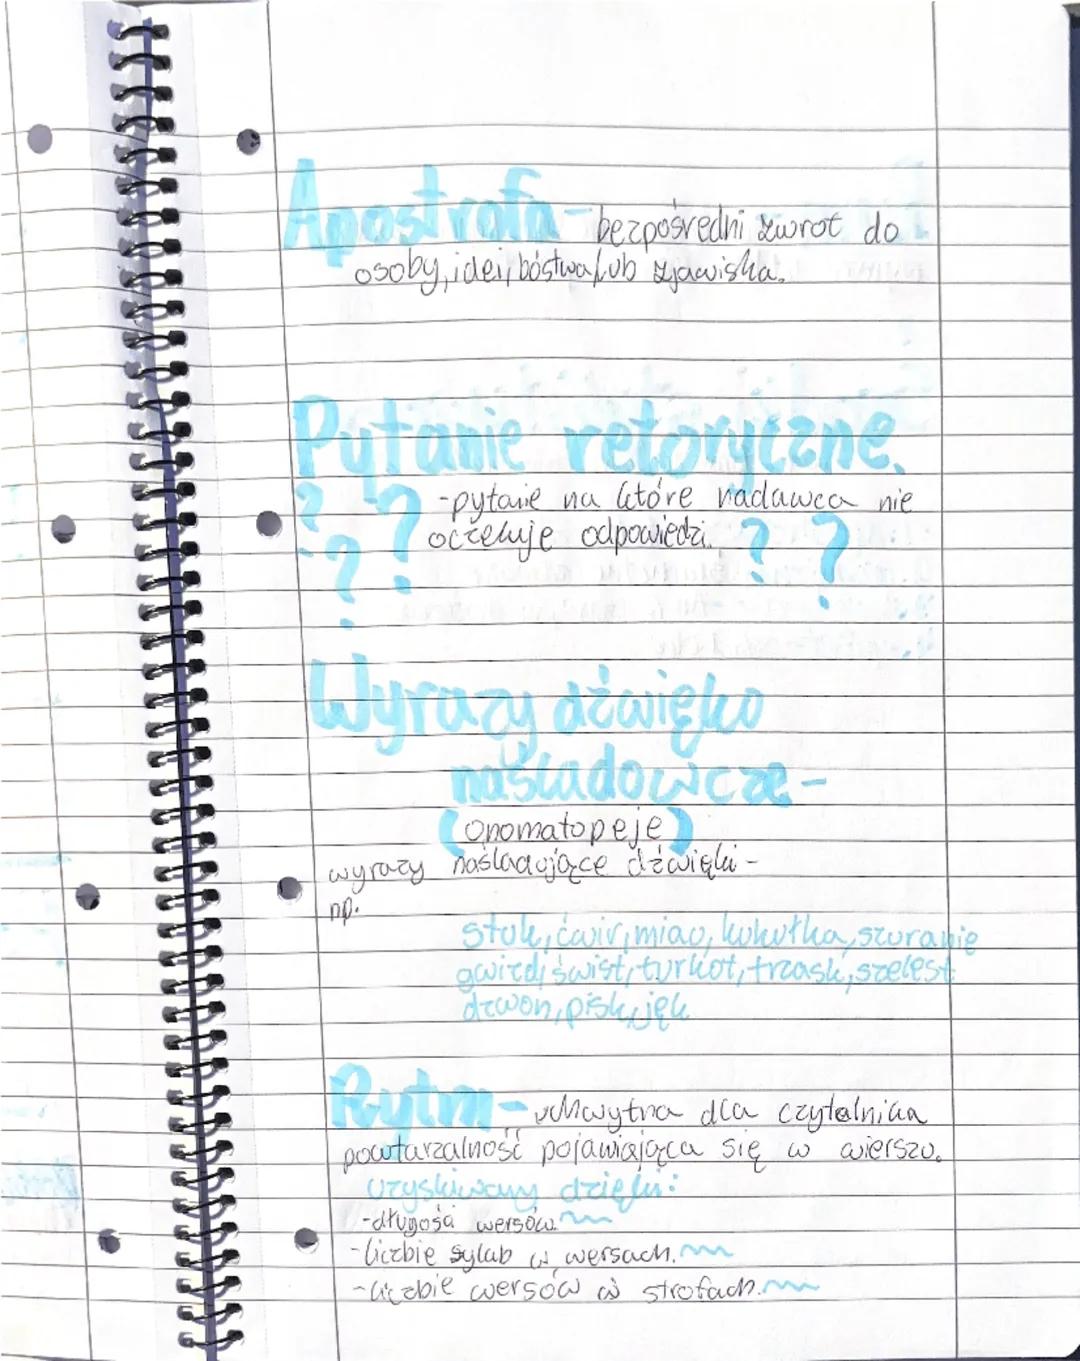 Apostrofa - bezpośredni zwrot do
osoby, idei, bóstwa lub zjawiska.
Pytanie retoryczne.
-pytanie na które nadawca nie
oczekuje odpowiedzi.
? ? ? ? ? ?
Wyrazy dźwięko
naśladowcze -
(onomatopeje)
wyrazy naśladojące dźwięki -
np.
stuk, ćwir, miao, kukułka, szuranie
gwizd, świst, turkot, trzask, szelest
dzwon, pisk, jęk
Rytm - uchwytna dla czytelnika
powtarzalność pojawiająca się w wierszu.
Uzyskiwany dzięki:
-długośa wersów.
-liczbie sylab w wersach.
-liczbie wersów w strofach.